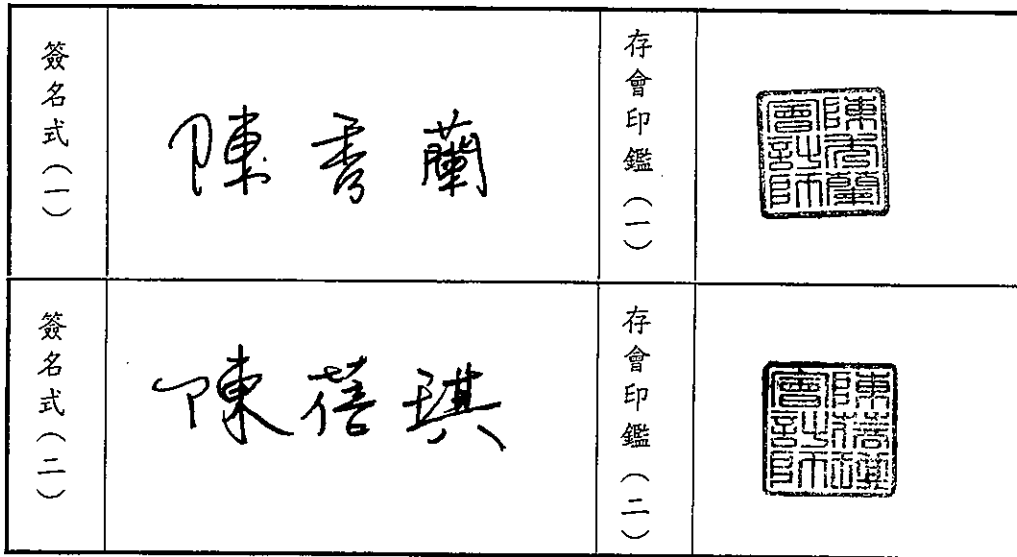 簽名式(一)
陳秀蘭
存會印鑑(一)
陳秀蘭會計師
簽名式(二)
陳蓓琪
存會印鑑(二)
陳蓓琪會計師